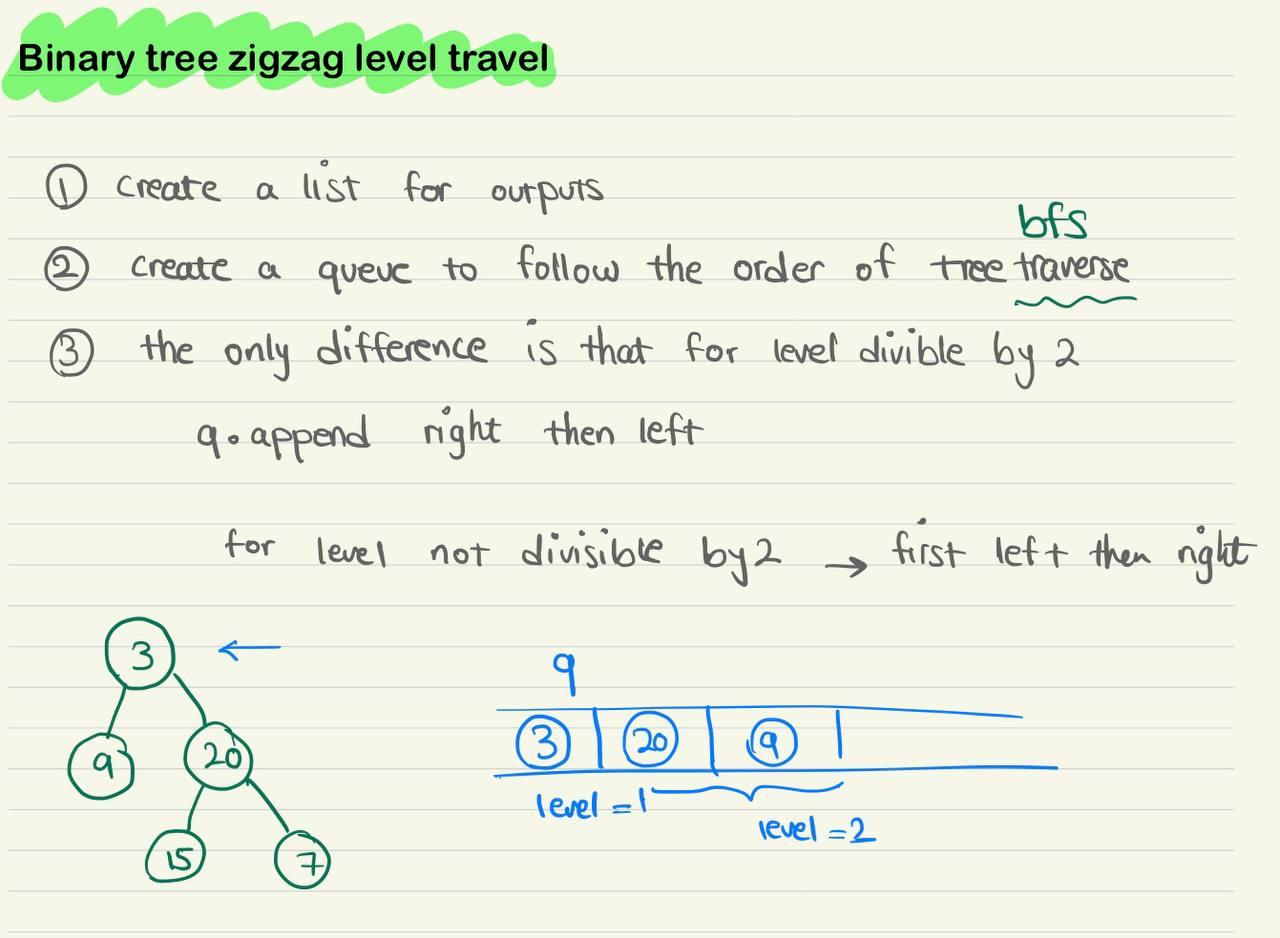 Binary tree zigzag level travel
① create a list for outputs
bfs
② create a queue to follow the order of tree traverse
③ the only difference is that for level divible by 2
q.append right then left
for level not divisible by 2 → first left then right
3 ←
q
9 20
3 20 9
level = 1
level = 2
15 7